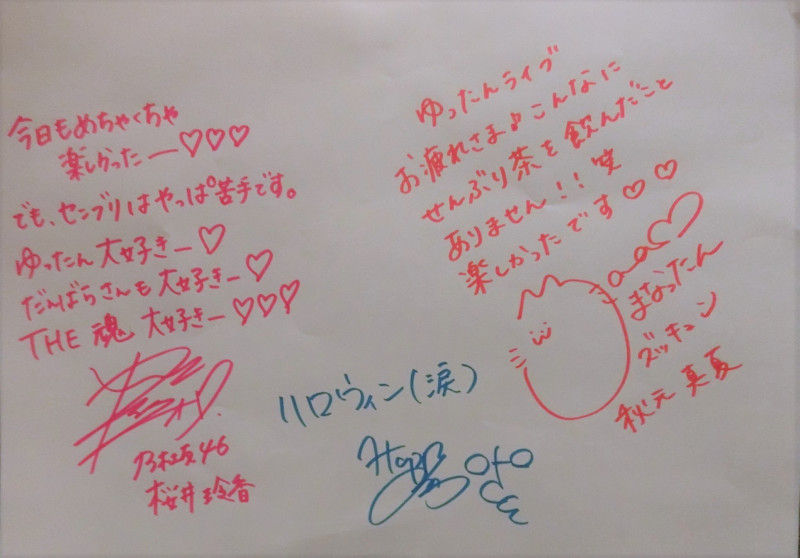 今日もめちゃくちゃ
楽しかったー♡♡♡
でも、センブリはやっぱ苦手です。
ゆったん大好きー♡
だいばらさんも大好きー♡
THE 魂 大好きー♡♡♡
乃木坂46
桜井玲香
ハロウィン(涙)
ゆったんライブ
お疲れさま♪こんなに
せんぶり茶を飲んだこと
ありません!!笑
楽しかったです♡♡
まなったん
ズッキュン
秋元真夏